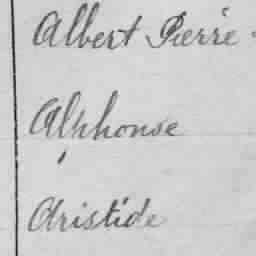 Albert Pierre
Alphonse
Aristide